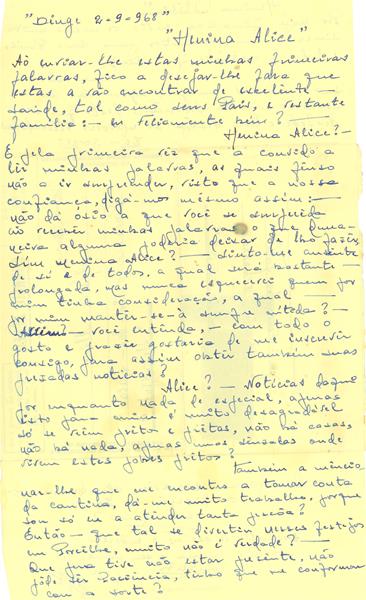 "Dinge 2-9-968"
"Menina Alice"
Ao enviar-lhe estas minhas primeiras
palavras, fico a desejar-lhe para que
estas a vão encontrar de excelente
saúde, tal como seus Pais, e restante
família:- Eu Felizmente bem? -
Menina Alice? -
É pela primeira vez que a convido a
ler minhas palavras, as quais penso
não a ir surpreender, visto que a nossa
confiança, digá-mos mesmo assim: -
não dá ósio a que você se surpreenda
ao receber minhas palavras o que duma-
neira alguma poderia deixar de lho fazer,
Sim Menina Alice? - Sinto-me ausente
de si e de todos, a qual será bastante -
prolongada, mas nunca esquecerei quem por
mim tinha consideração, a qual -
por mim manter-se-á sempre
- você entenda, - com todo o
gosto e prazer gostaria de me inscrever
consigo, para assim obter também suas
prezadas notícias?
Alice? - Notícias daqui
por enquanto nada de especial, apenas
isto para mim é muito desagradável
só se vêm pretos e pretas, não há casas,
não há nada, apenas umas senzalas onde
vivem estes pobres pretos?
Também a mincio-
nar-lhe que me encontro a tomar conta
da cantina, dá-me muito trabalho, porque
sou só eu a atender tanta pessoa?
Então - que tal se divertiu nesses festejos
em muito não é verdade? -
Que pena tive não estar presente, não
pôde ser Paciência, tinha que me conformar
com a sorte?